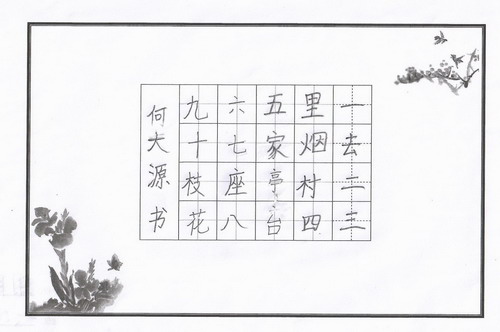 一去二三
里烟村四
五家亭台
六七座八
九十枝花
何大源书